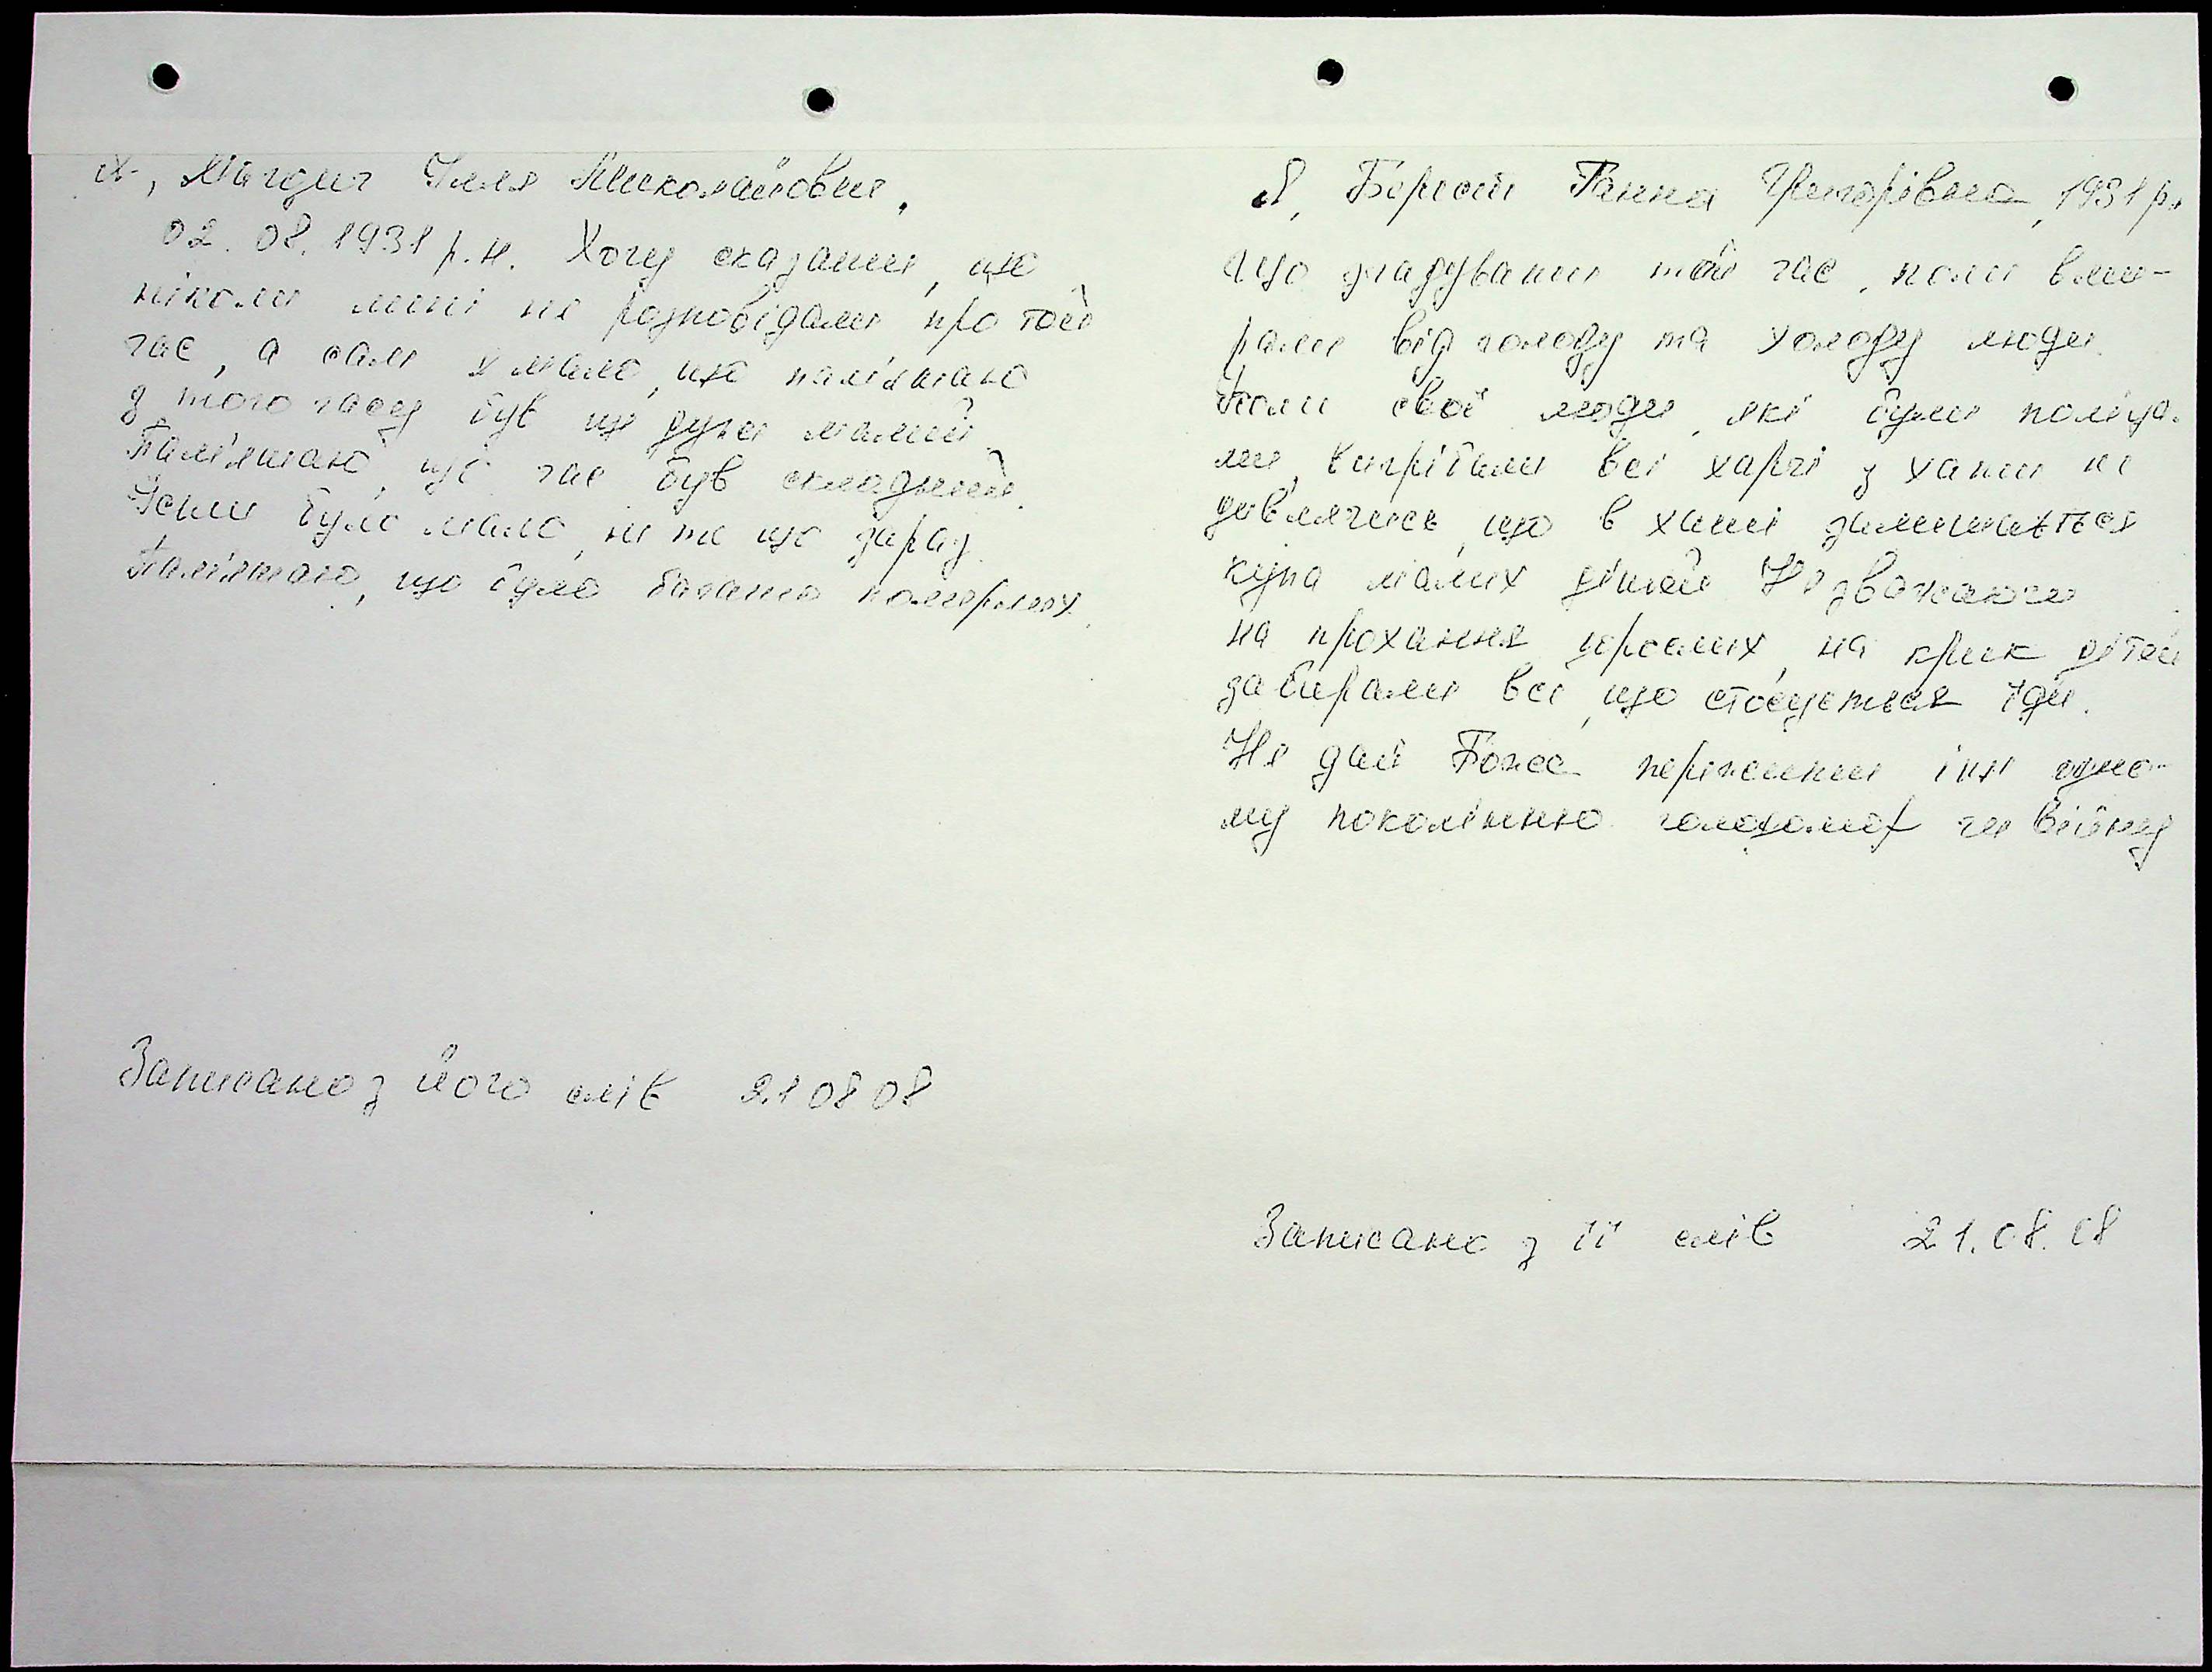 Я, Мандич Ілля Миколайович,
02.08.1931 р.н. Хочу сказати, що
ніколи мені не розповідали про той
час, а сам я мало що пам'ятаю
з того часу був ще дуже малий.
Пам'ятаю, що час був складний.
Їсти було мало, не те що зараз.
Пам'ятаю, що було багато померлих.
Записано з його слів 21 08 08
Я, Ганна Григорівна, 1931 р.
Що згадувати той час, коли вми-
рали від голоду та холоду люди.
Коли свої люди, які були поліца-
ми, вигрібали всі харчі з хати не
дивлячись, що в хаті залишається
купа малих дітей. Не зважаючи
на прохання дорослих, на крик дітей
забирали все, що стосується їди.
Не дай Боже пережити ще одно-
му поколінню голодомор чи війну
Записано з її слів 21.08.08